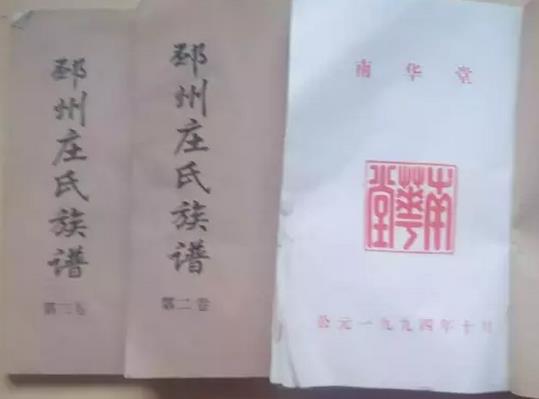 邳州庄氏族谱
第三卷
邳州庄氏族谱
第二卷
南华堂
南華堂
公元一九九四年十月